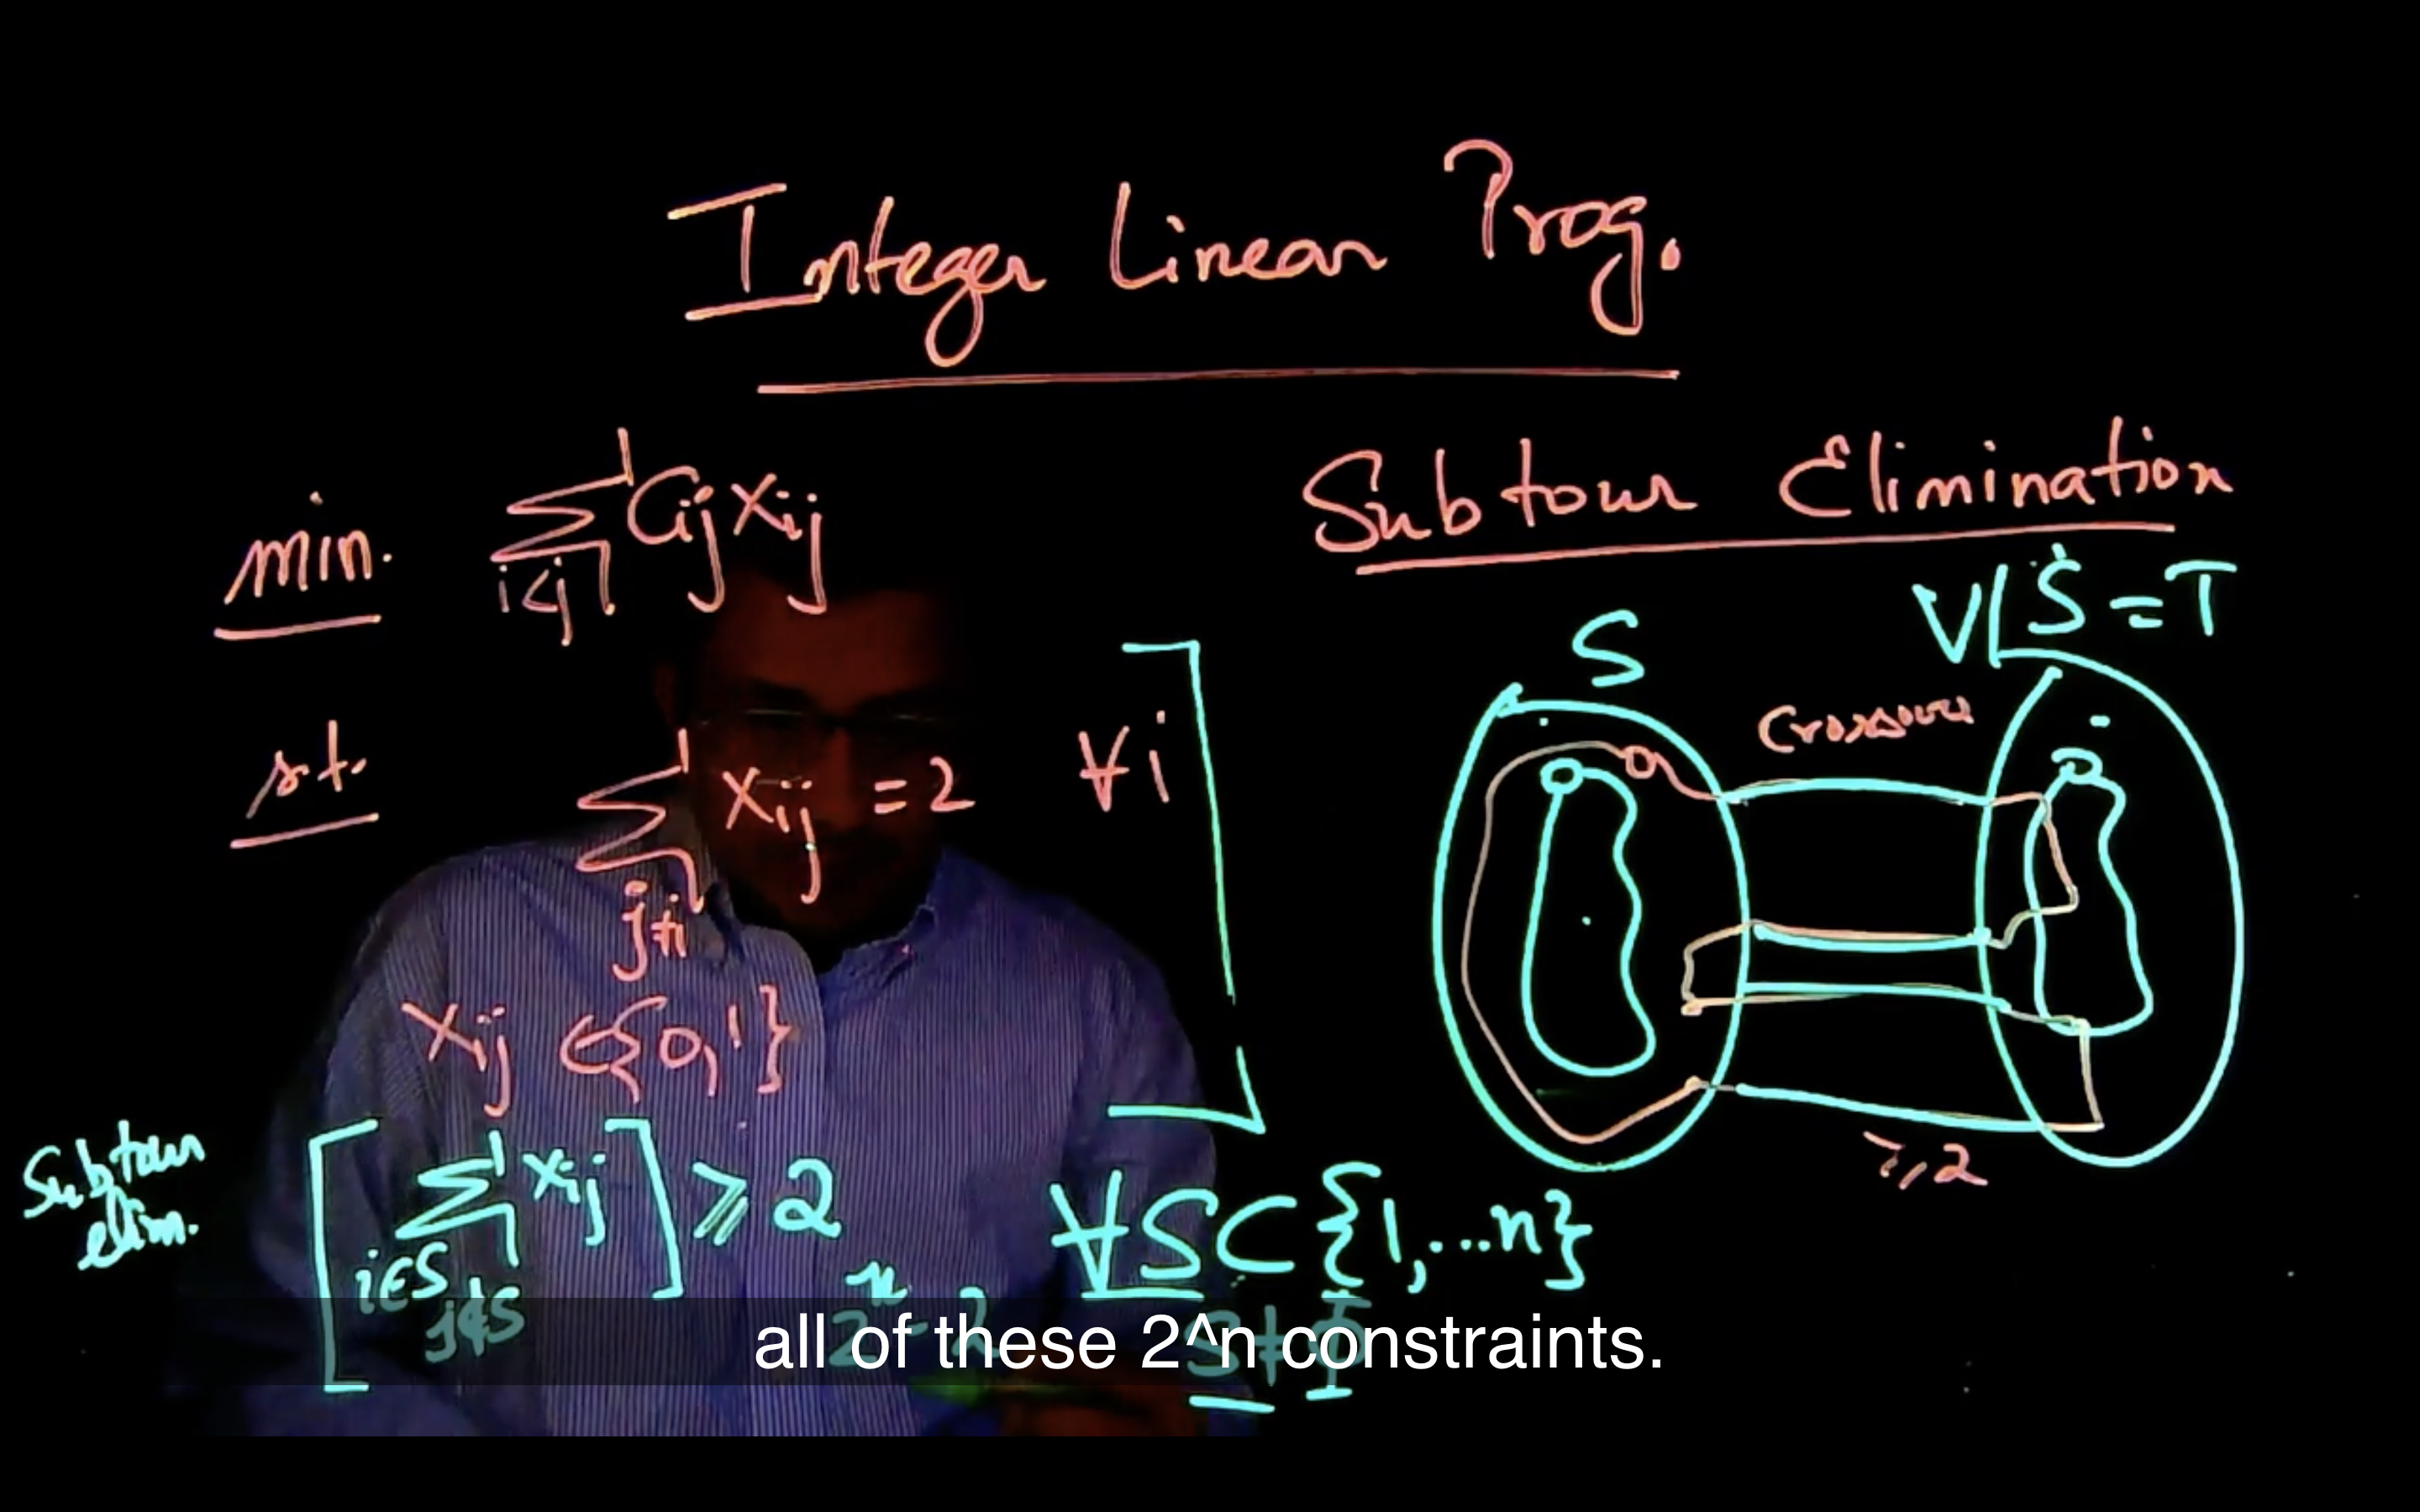 Integer Linear Prog.
min. ∑ Cij xij
i<j
s.t. ∑ xij = 2 ∀i
j≠i
xij ∈ {0,1}
Subtour elim.
[∑ xij] ≥ 2 ∀S ⊂ {1,...n}
i∈S
j∉S
2^n - 2
S ≠ Φ
Subtour Elimination
S
V\S = T
Crossover
≥2
all of these 2^n constraints.